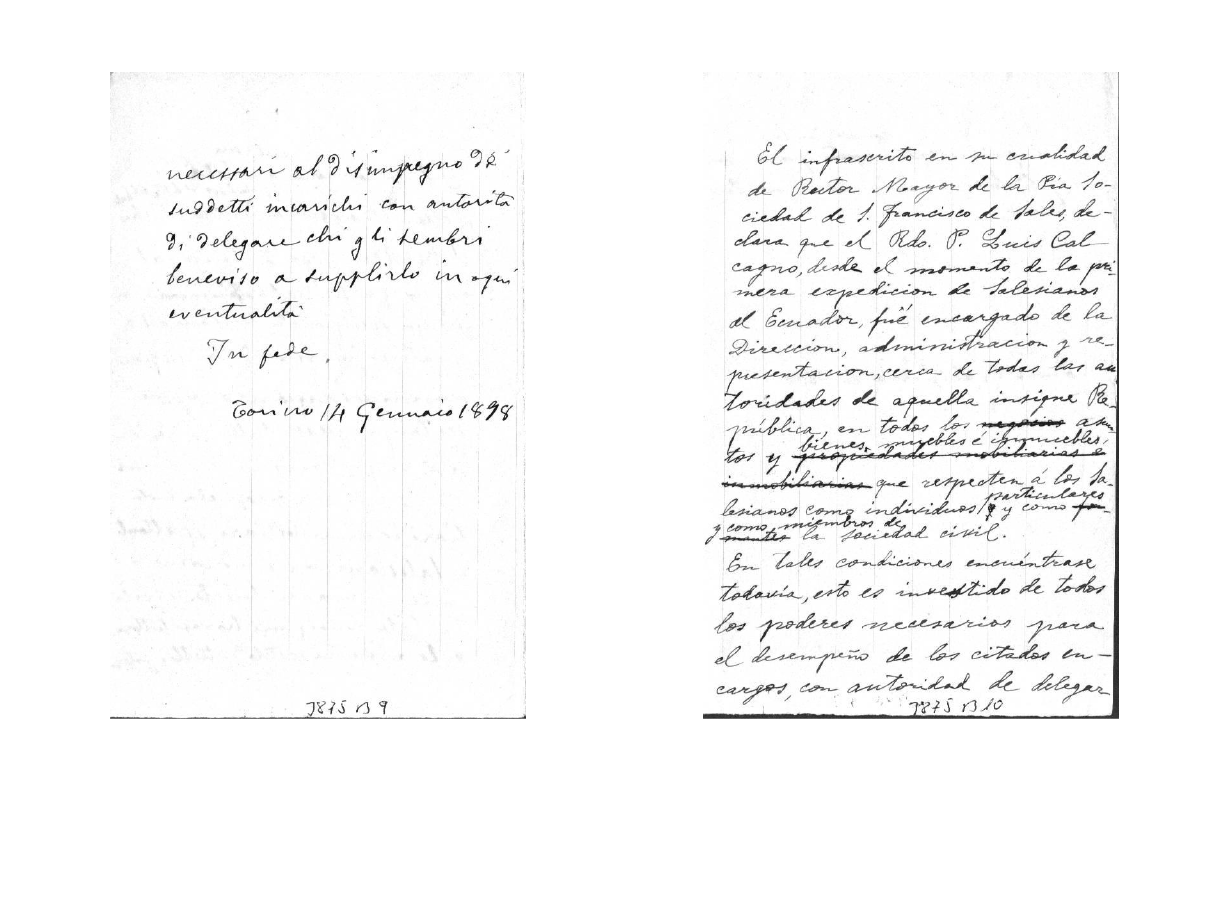 necessari al disimpegno dei
suddetti incarichi con autorità
di delegare chi gli sembri
beneviso a supplirlo in ogni
eventualità
In fede.
Torino 14 Gennaio 1898
J875 B 9
El infrascrito en su cualidad
de Rector Mayor de la Pia So-
ciedad de S. Francisco de Sales, de-
clara que el Rdo. P. Luis Cal
cagno, desde el momento de la pri-
mera expedicion de Salesianos
al Ecuador, fué encargado de la
Direccion, administracion y re-
presentacion, cerca de todas las au
toridades de aquella insigne Re-
pública, en todos los negocios asun
bienes, muebles é inmuebles,
tos y propiedades mobiliarias e
inmobiliarias que respecten á los Sa-
particulares
lesianos como individuos y como for-
y como miembros de
mantes la sociedad civil.
En tales condiciones encuéntrase
todavía, esto es investido de todos
los poderes necesarios para
el desempeño de los citados en-
cargos, con autoridad de delegar
J875 B 10